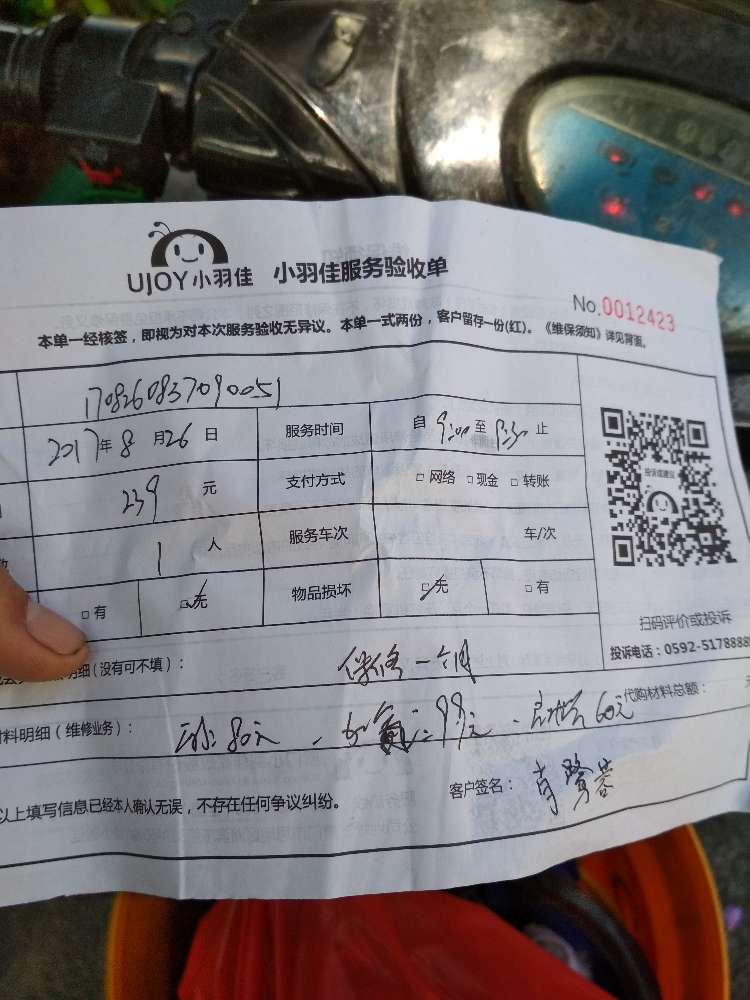 UJOY小羽佳 小羽佳服务验收单
No.0012423
本单一经核签，即视为对本次服务验收无异议。本单一式两份，客户留存一份(红)。《维保须知》详见背面。
1708260837090051
2017年8月26日 服务时间 自 9:00 至 9:30 止
239 元 支付方式 □网络 □现金 □转账
1 人 服务车次 车/次
□有 □无 物品损坏 □无 □有
投诉或建议
扫码评价或投诉
投诉电话：0592-5178888
明细(没有可不填)： 保修一个月
材料明细（维修业务）： 80元、加氟 99元、60元 代购材料总额：
以上填写信息已经本人确认无误，不存在任何争议纠纷。 客户签名：